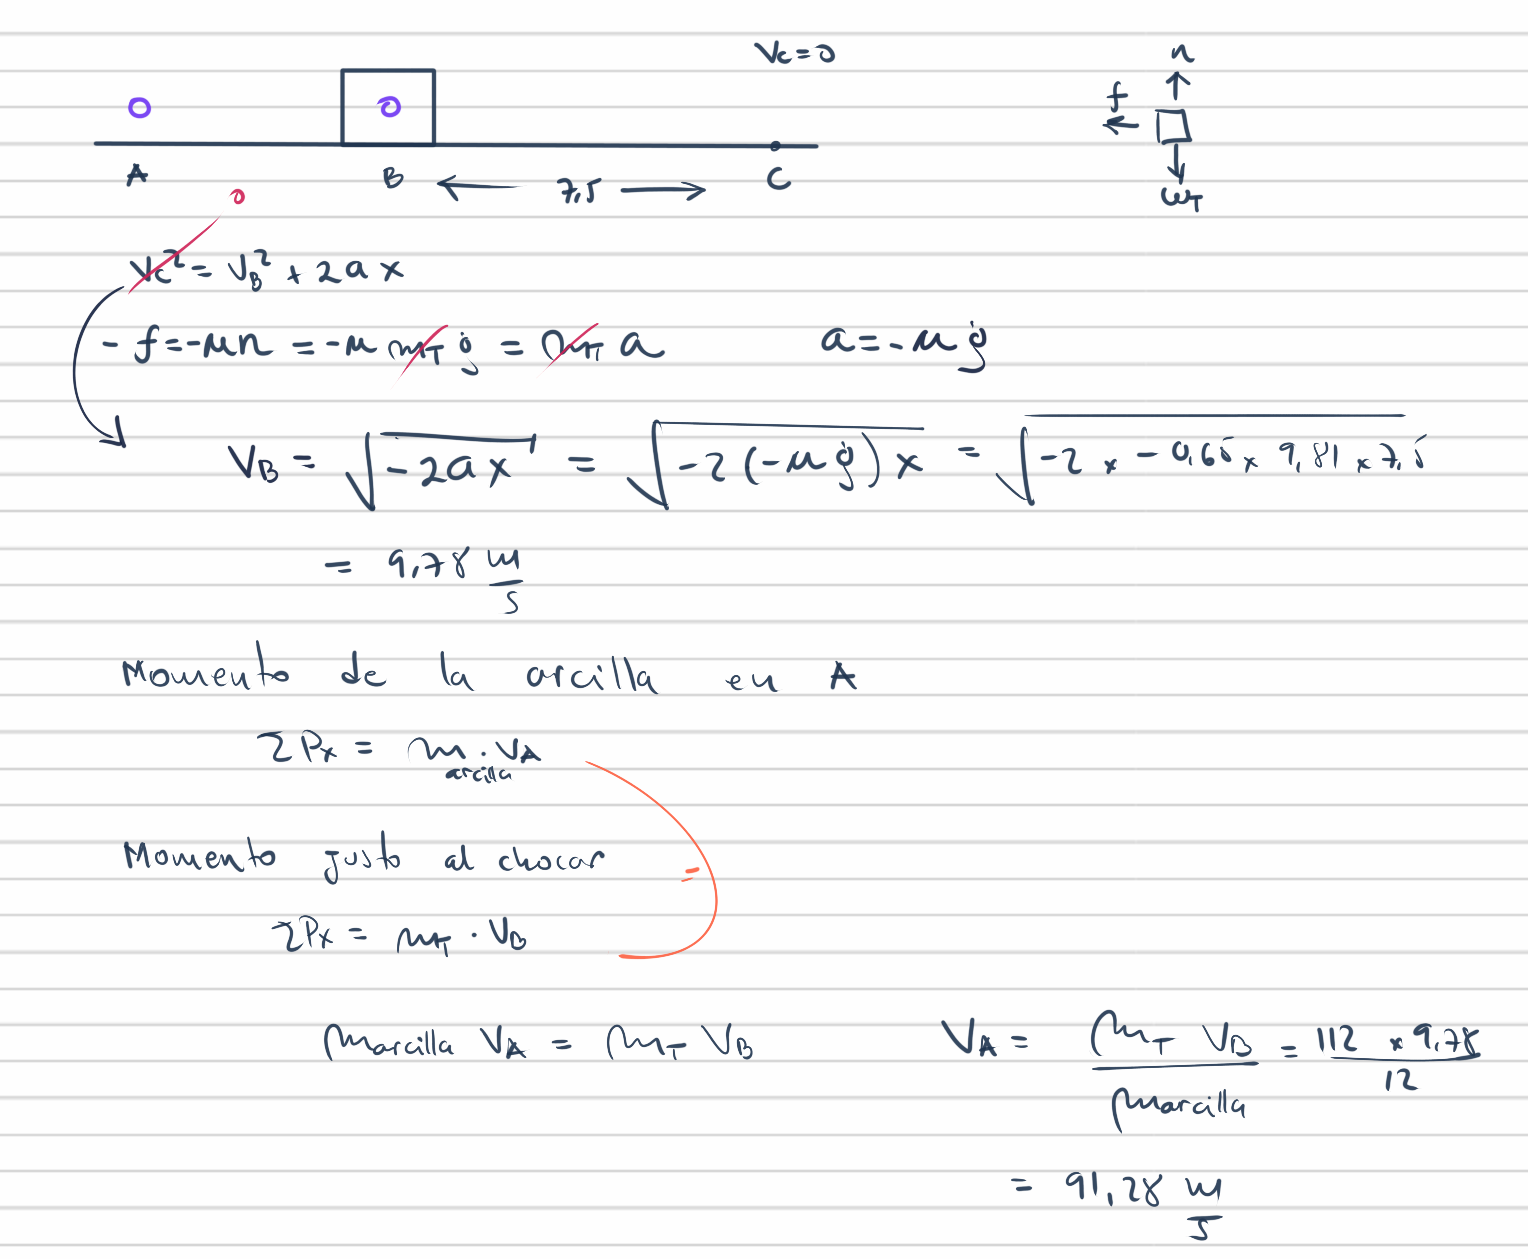 Vc = 0
n
f
ωT
A B 7,5 C
0
Vc² = VB² + 2ax
- f = -μn = -μ mT g = mT a a = -μ g
VB = √-2ax = √-2(-μg)x = √-2 x -0,65 x 9,81 x 7,5
= 9,78 m/s
Momento de la arcilla en A
ΣPx = m arcilla · VA
Momento justo al chocar
ΣPx = mT · VB
=
marcilla VA = mT VB VA = mT VB / marcilla = 112 x 9,78 / 12
= 91,28 m/s